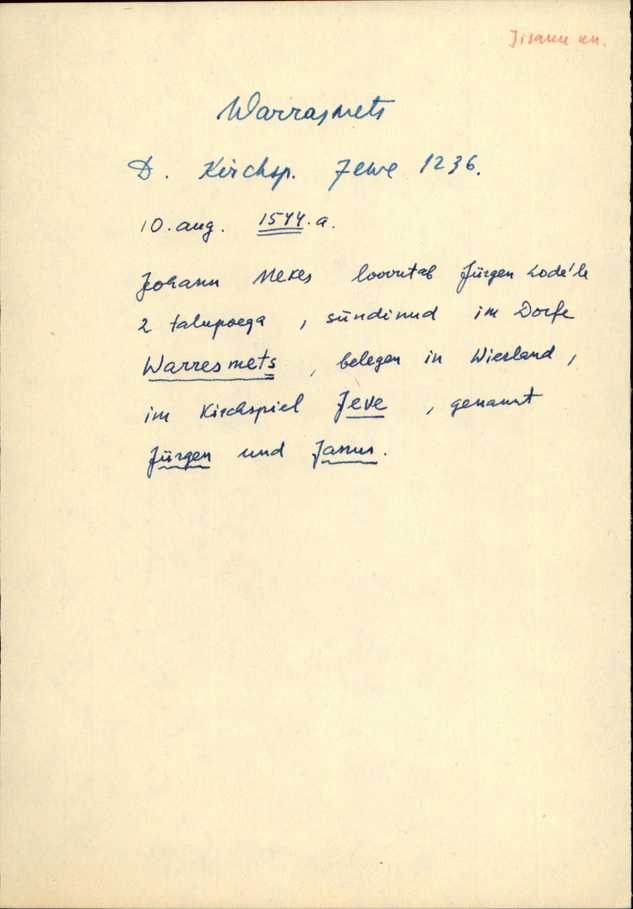 Jisaku kn.
Warrasmets
D. Kirchsp. Jewe 1236.
10. aug. 1544. a.
Johann Mekes loovutab Jürgen Lode'le
2 talupoega, sündinud im Dorfe
Warresmets, belegen in Wierland,
im Kirchspiel Jeve, genannt
Jürgen und Jasmus.